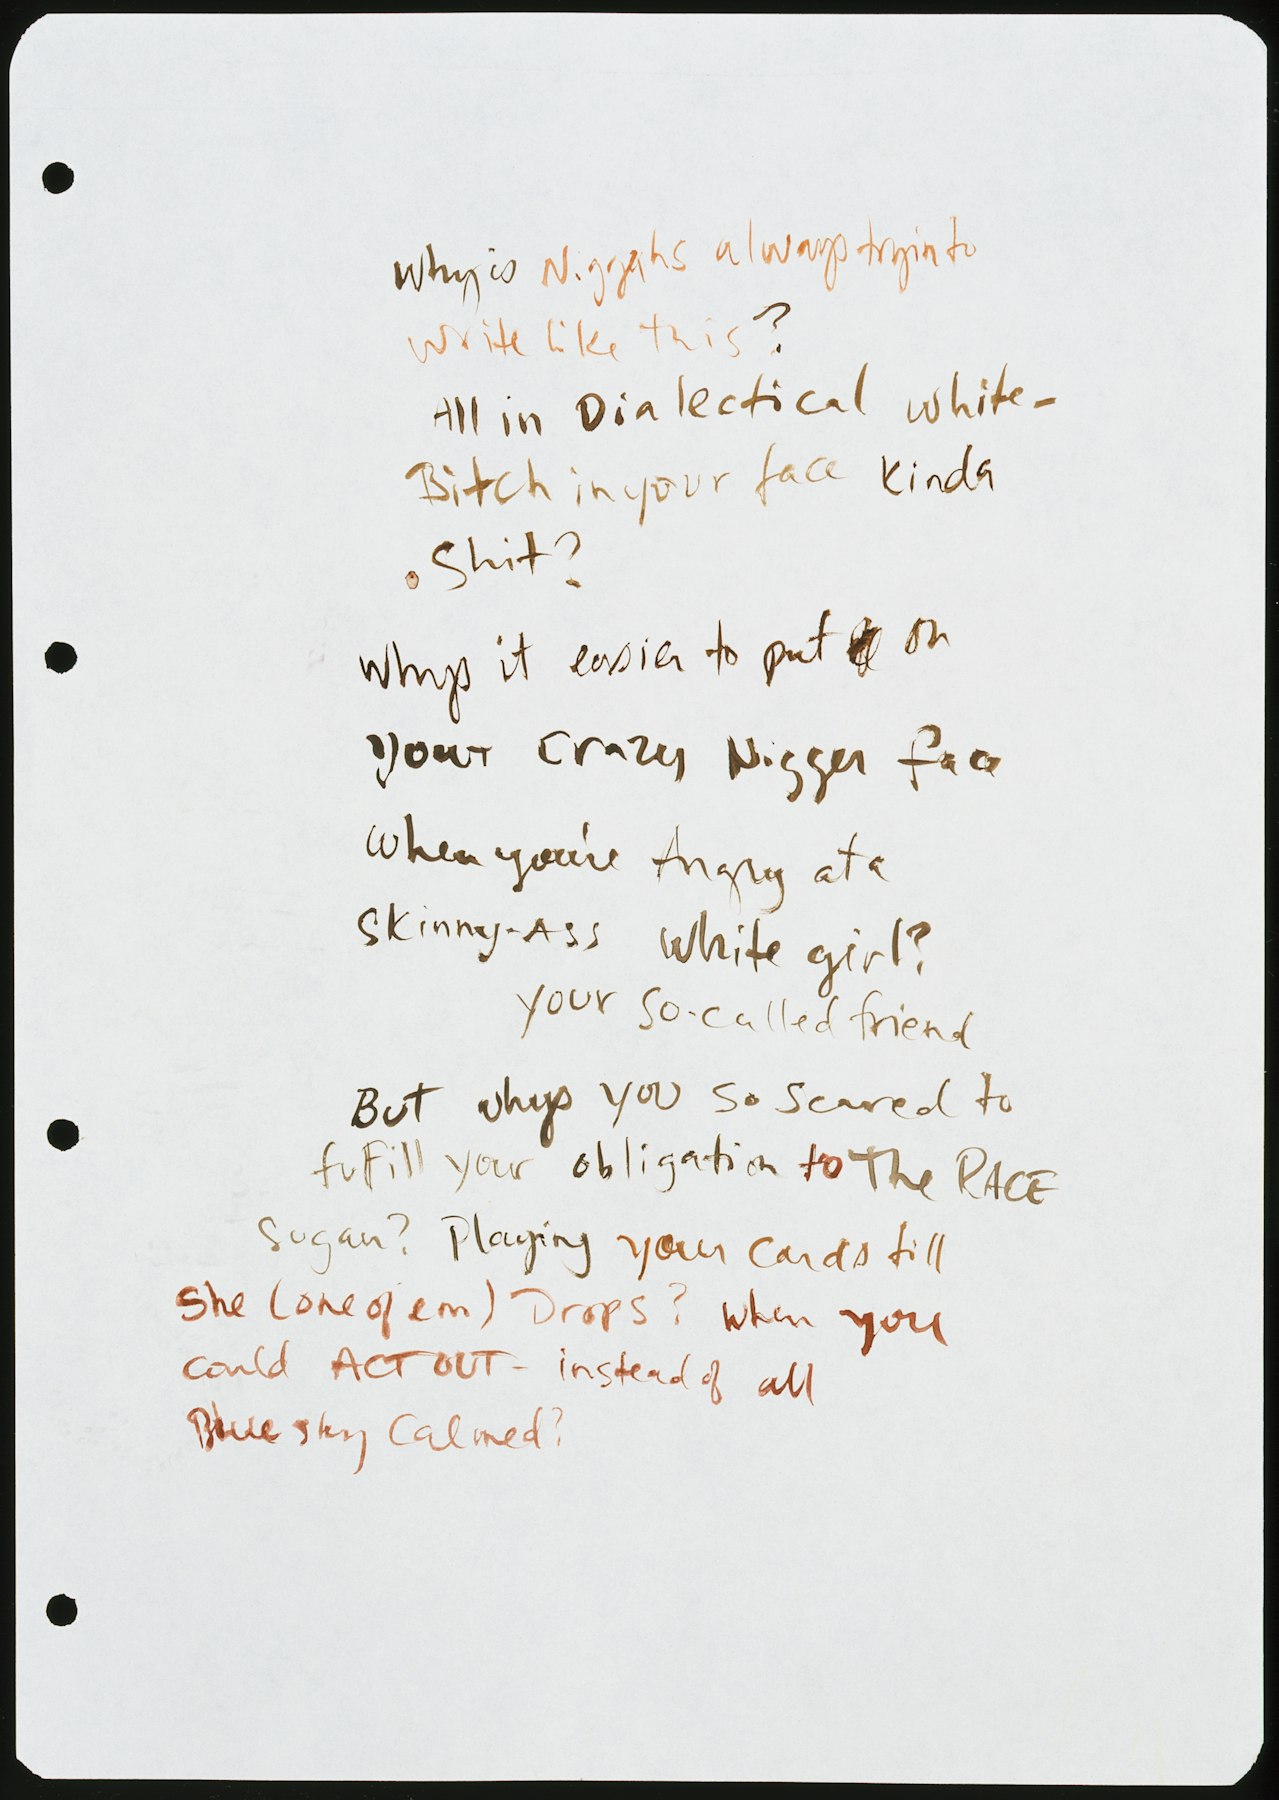 Why is Niggahs always tryin to
write like this?
All in Dialectical white-
Bitch in your face kinda
Shit?
Whys it easier to put on
your Crazy Nigger face
when you're Angry at a
skinny-Ass white girl?
your so-called friend
But whys you so scared to
fulfill your obligation to The RACE
Sugar? Playing your cards till
she (one of em) Drops? when you
could ACT OUT - instead of all
Blue sky Calmed?